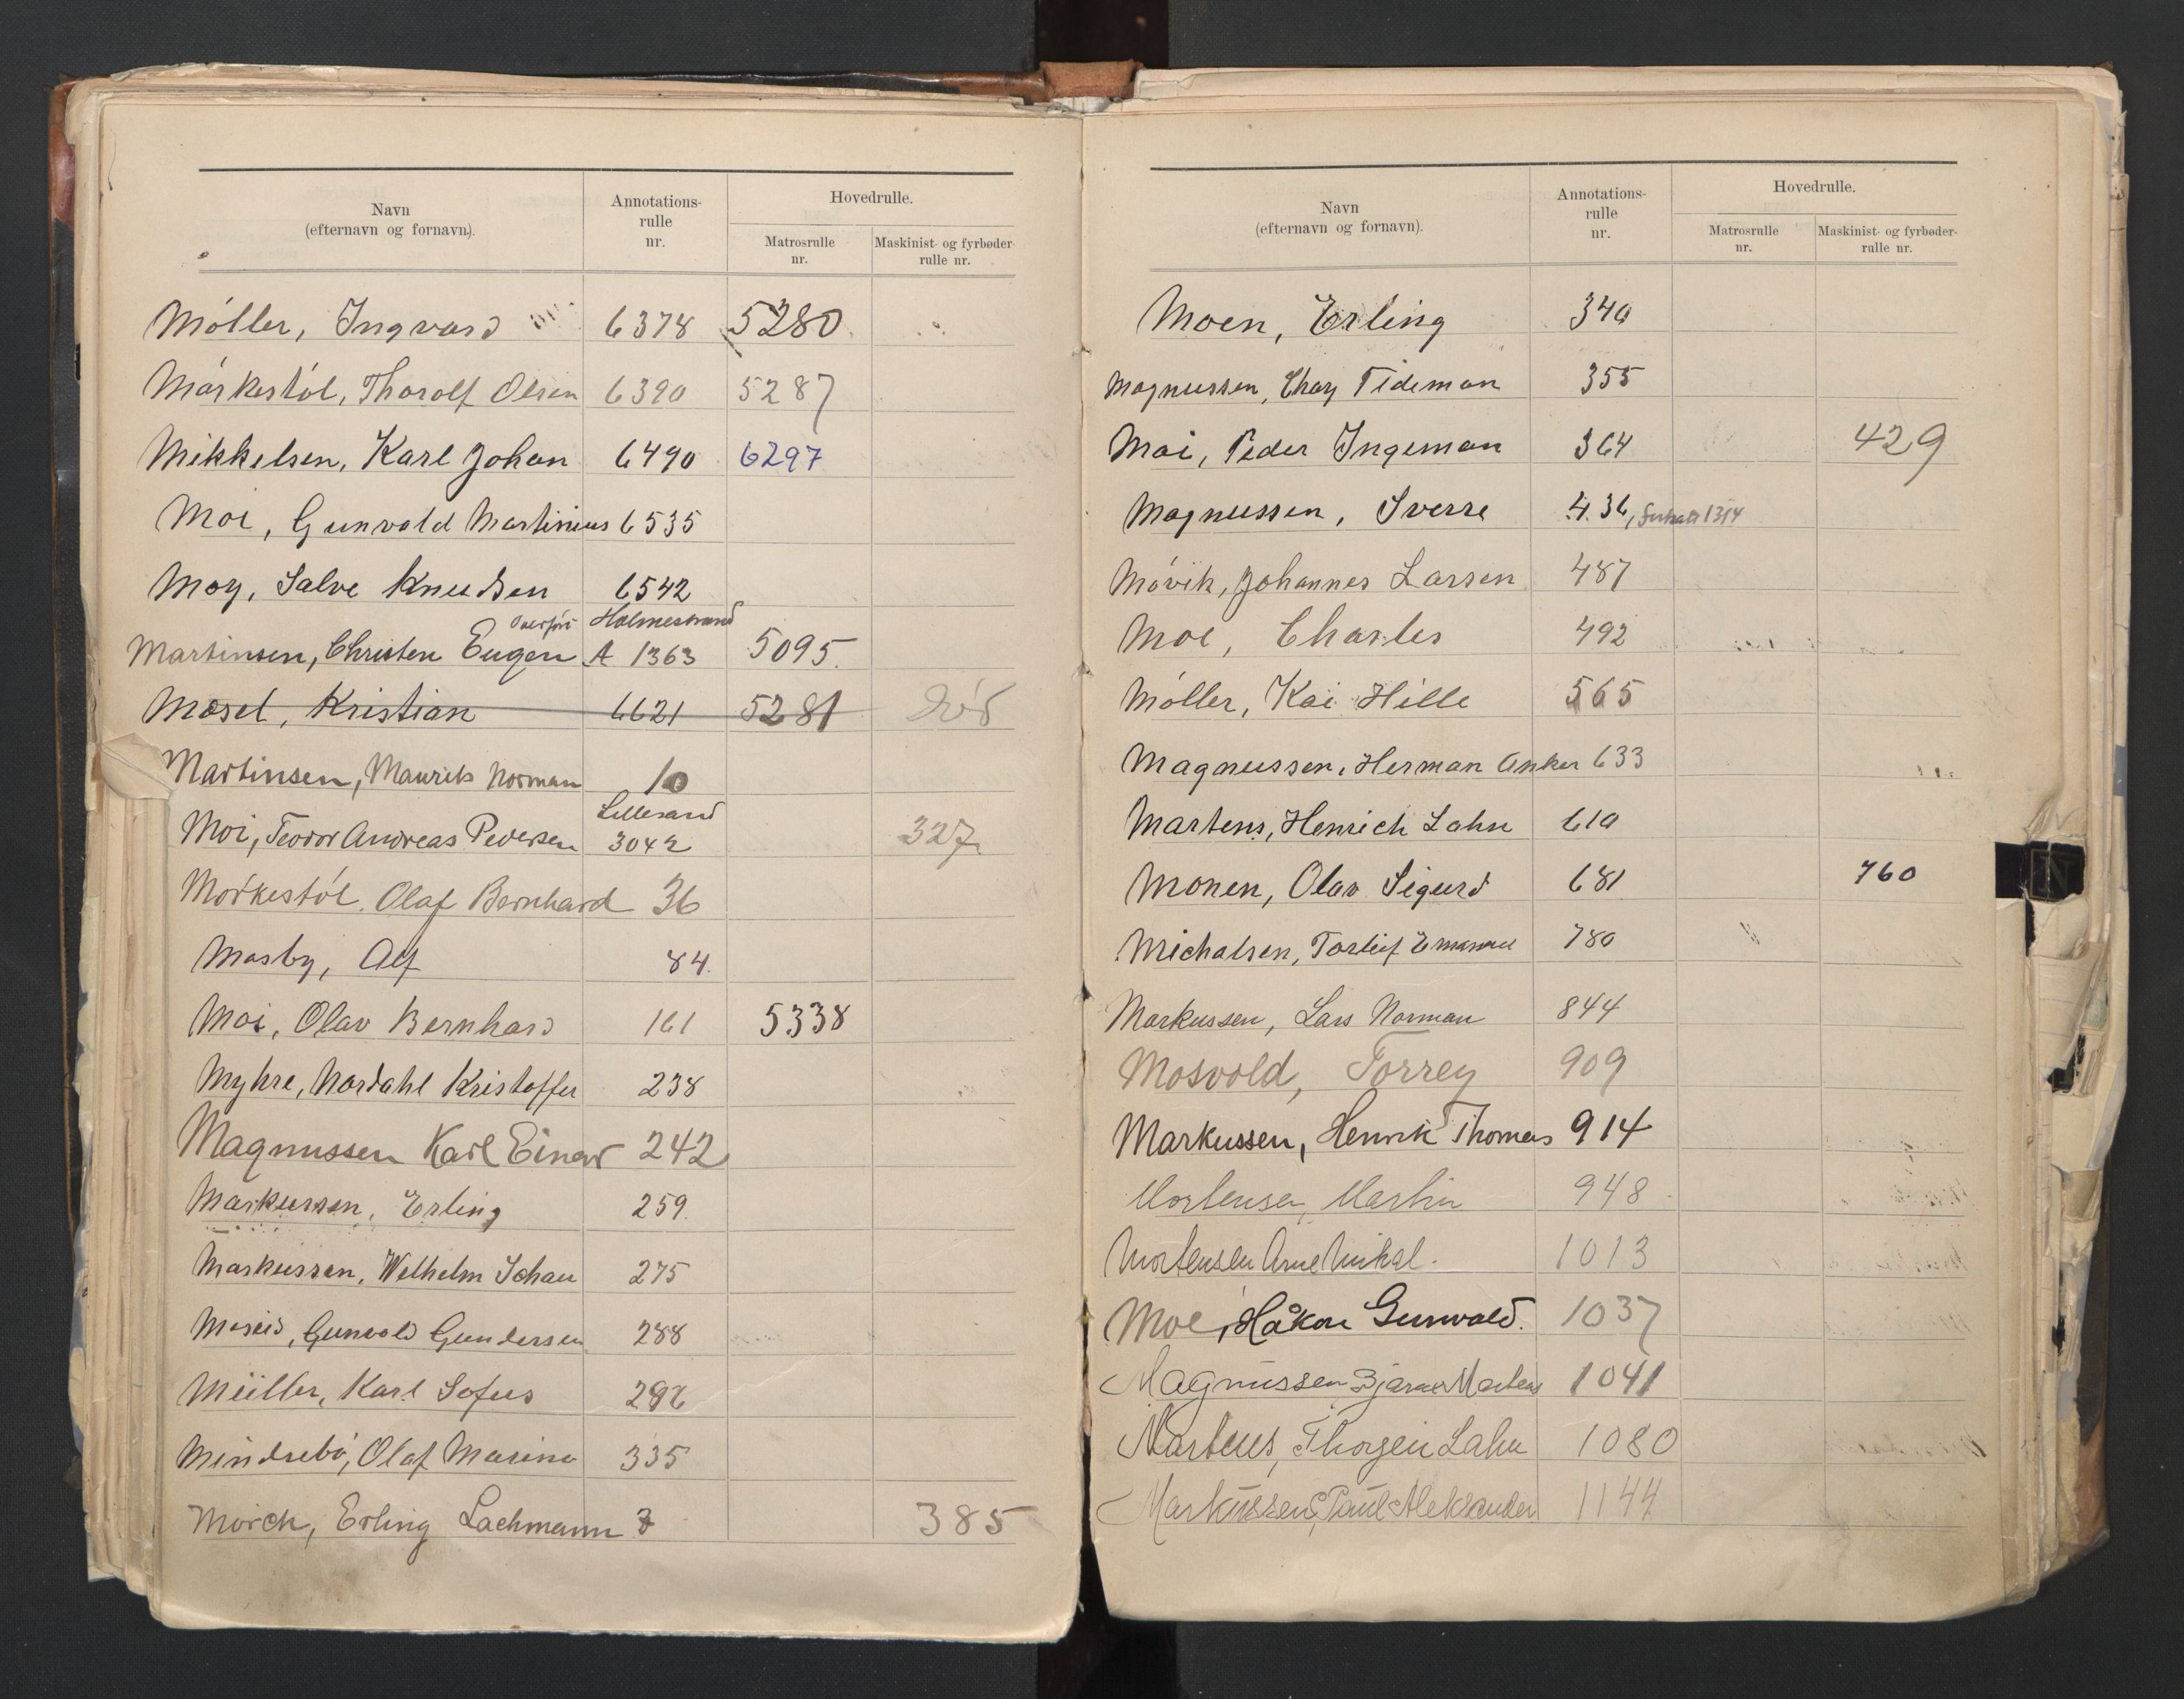 Navn
(efternavn og fornavn).
Annotations-
rulle
nr.
Hovedrulle.
Matrosrulle
nr.
Maskinist- og fyrbøder-
rulle nr.
Møller, Ingvard 6378 5280
Mørkestøl, Thorolf Olsen 6390 5287
Mikkelsen, Karl Johan 6490 6297
Moi, Gunvald Martinius 6535
Moy, Salve Knudsen 6542
Overført Holmestrand
Martinsen, Christen Eugen A 1363 5095
Mosel, Kristian 6621 5281 død
Martinsen, Maurits Norman 10
Lillesand
Moi, Teodor Andreas Pedersen 3042 327
Mørkestøl, Olaf Bernhard 36
Mosby, Alf 84
Moi, Olav Bernhard 161 5338
Myhre, Nordahl Kristoffer 238
Magnussen Karl Einar 242
Markussen, Erling 259
Markussen, Wilhelm Schau 275
Moseid, Gunvald Gundersen 288
Müller, Karl Sofus 292
Mindrebø, Olaf Marino 335
Mørch, Erling Lachmann 7 385
Navn
(efternavn og fornavn).
Annotations-
rulle
nr.
Hovedrulle.
Matrosrulle
nr.
Maskinist- og fyrbøder-
rulle nr.
Moen, Erling 340
Magnussen, Chay Tideman 355
Moi, Peder Ingeman 364 429
Magnussen, Sverre 436, 1314
Møvik, Johannes Larsen 487
Moe, Charles 492
Møller, Kai Hille 565
Magnussen, Herman Anker 633
Martens, Henrich Lahn 610
Monen, Olav Sigurd 681 760
Michalsen, Torleif Emanuel 780
Markussen, Lars Norman 844
Mosvold, Torrey 909
Markussen, Henrik Thomas 914
Mortensen, Martin 948
Mortensen Arne Mikal. 1013
Moe, Håkon Gunvald. 1037
Magnussen Bjarne Martens 1041
Martens, Thorgeir Lahn 1080
Markussen, Paul Aleksander 1144